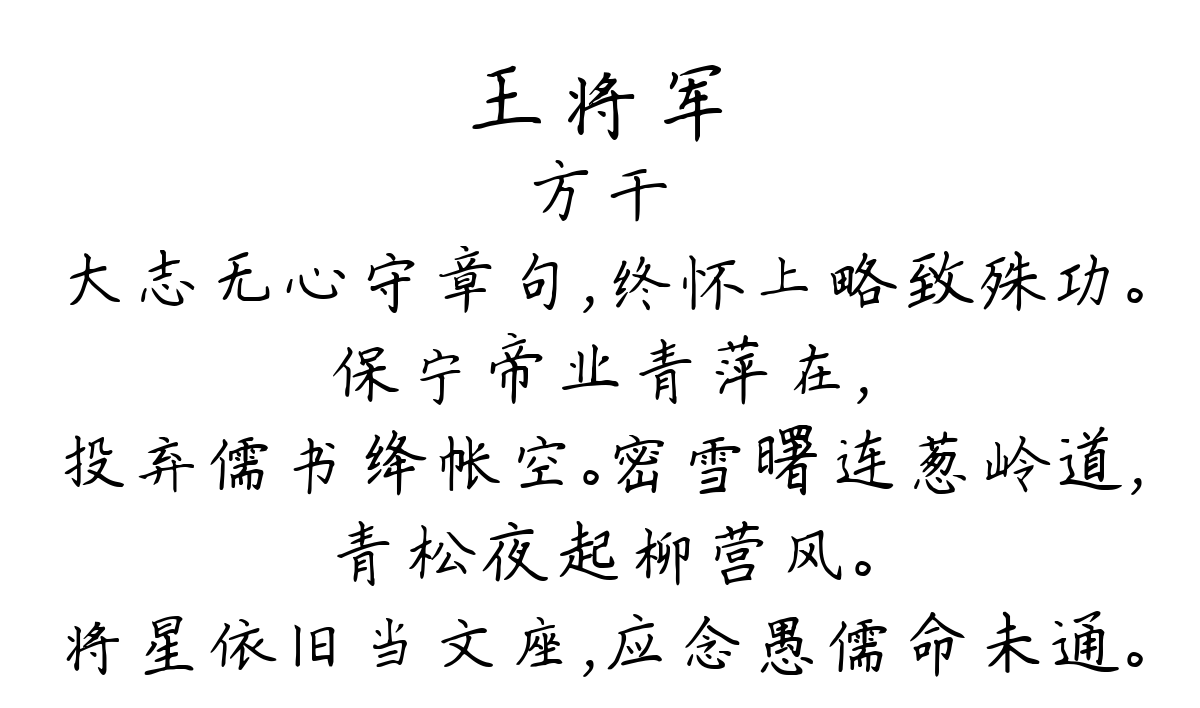 王将军
方干
大志无心守章句,终怀上略致殊功。
保宁帝业青萍在,
投弃儒书绛帐空。密雪曙连葱岭道,
青松夜起柳营风。
将星依旧当文座,应念愚儒命未通。